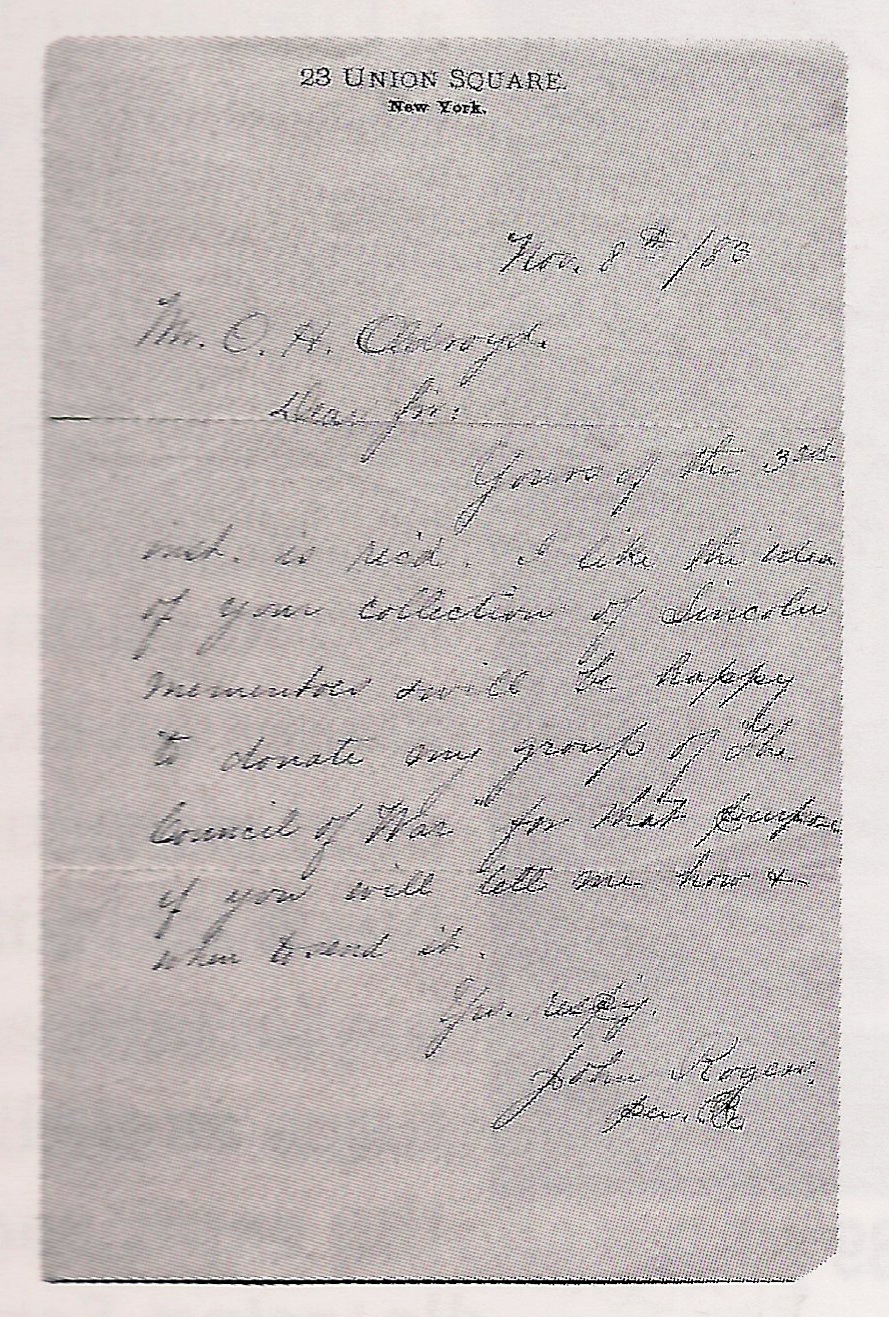 23 UNION SQUARE.
New York.
Nov. 8th /83
Mr. O. H. Oldroyd.
Dear Sir:
Yours of the 3rd
inst. is rec'd. I like the idea
of your collection of Lincoln
mementoes & will be happy
to donate my group of "The
Council of War" for that purpose
if you will tell me how &
when to send it.
Yrs. resp'y.
John Rogers.
per